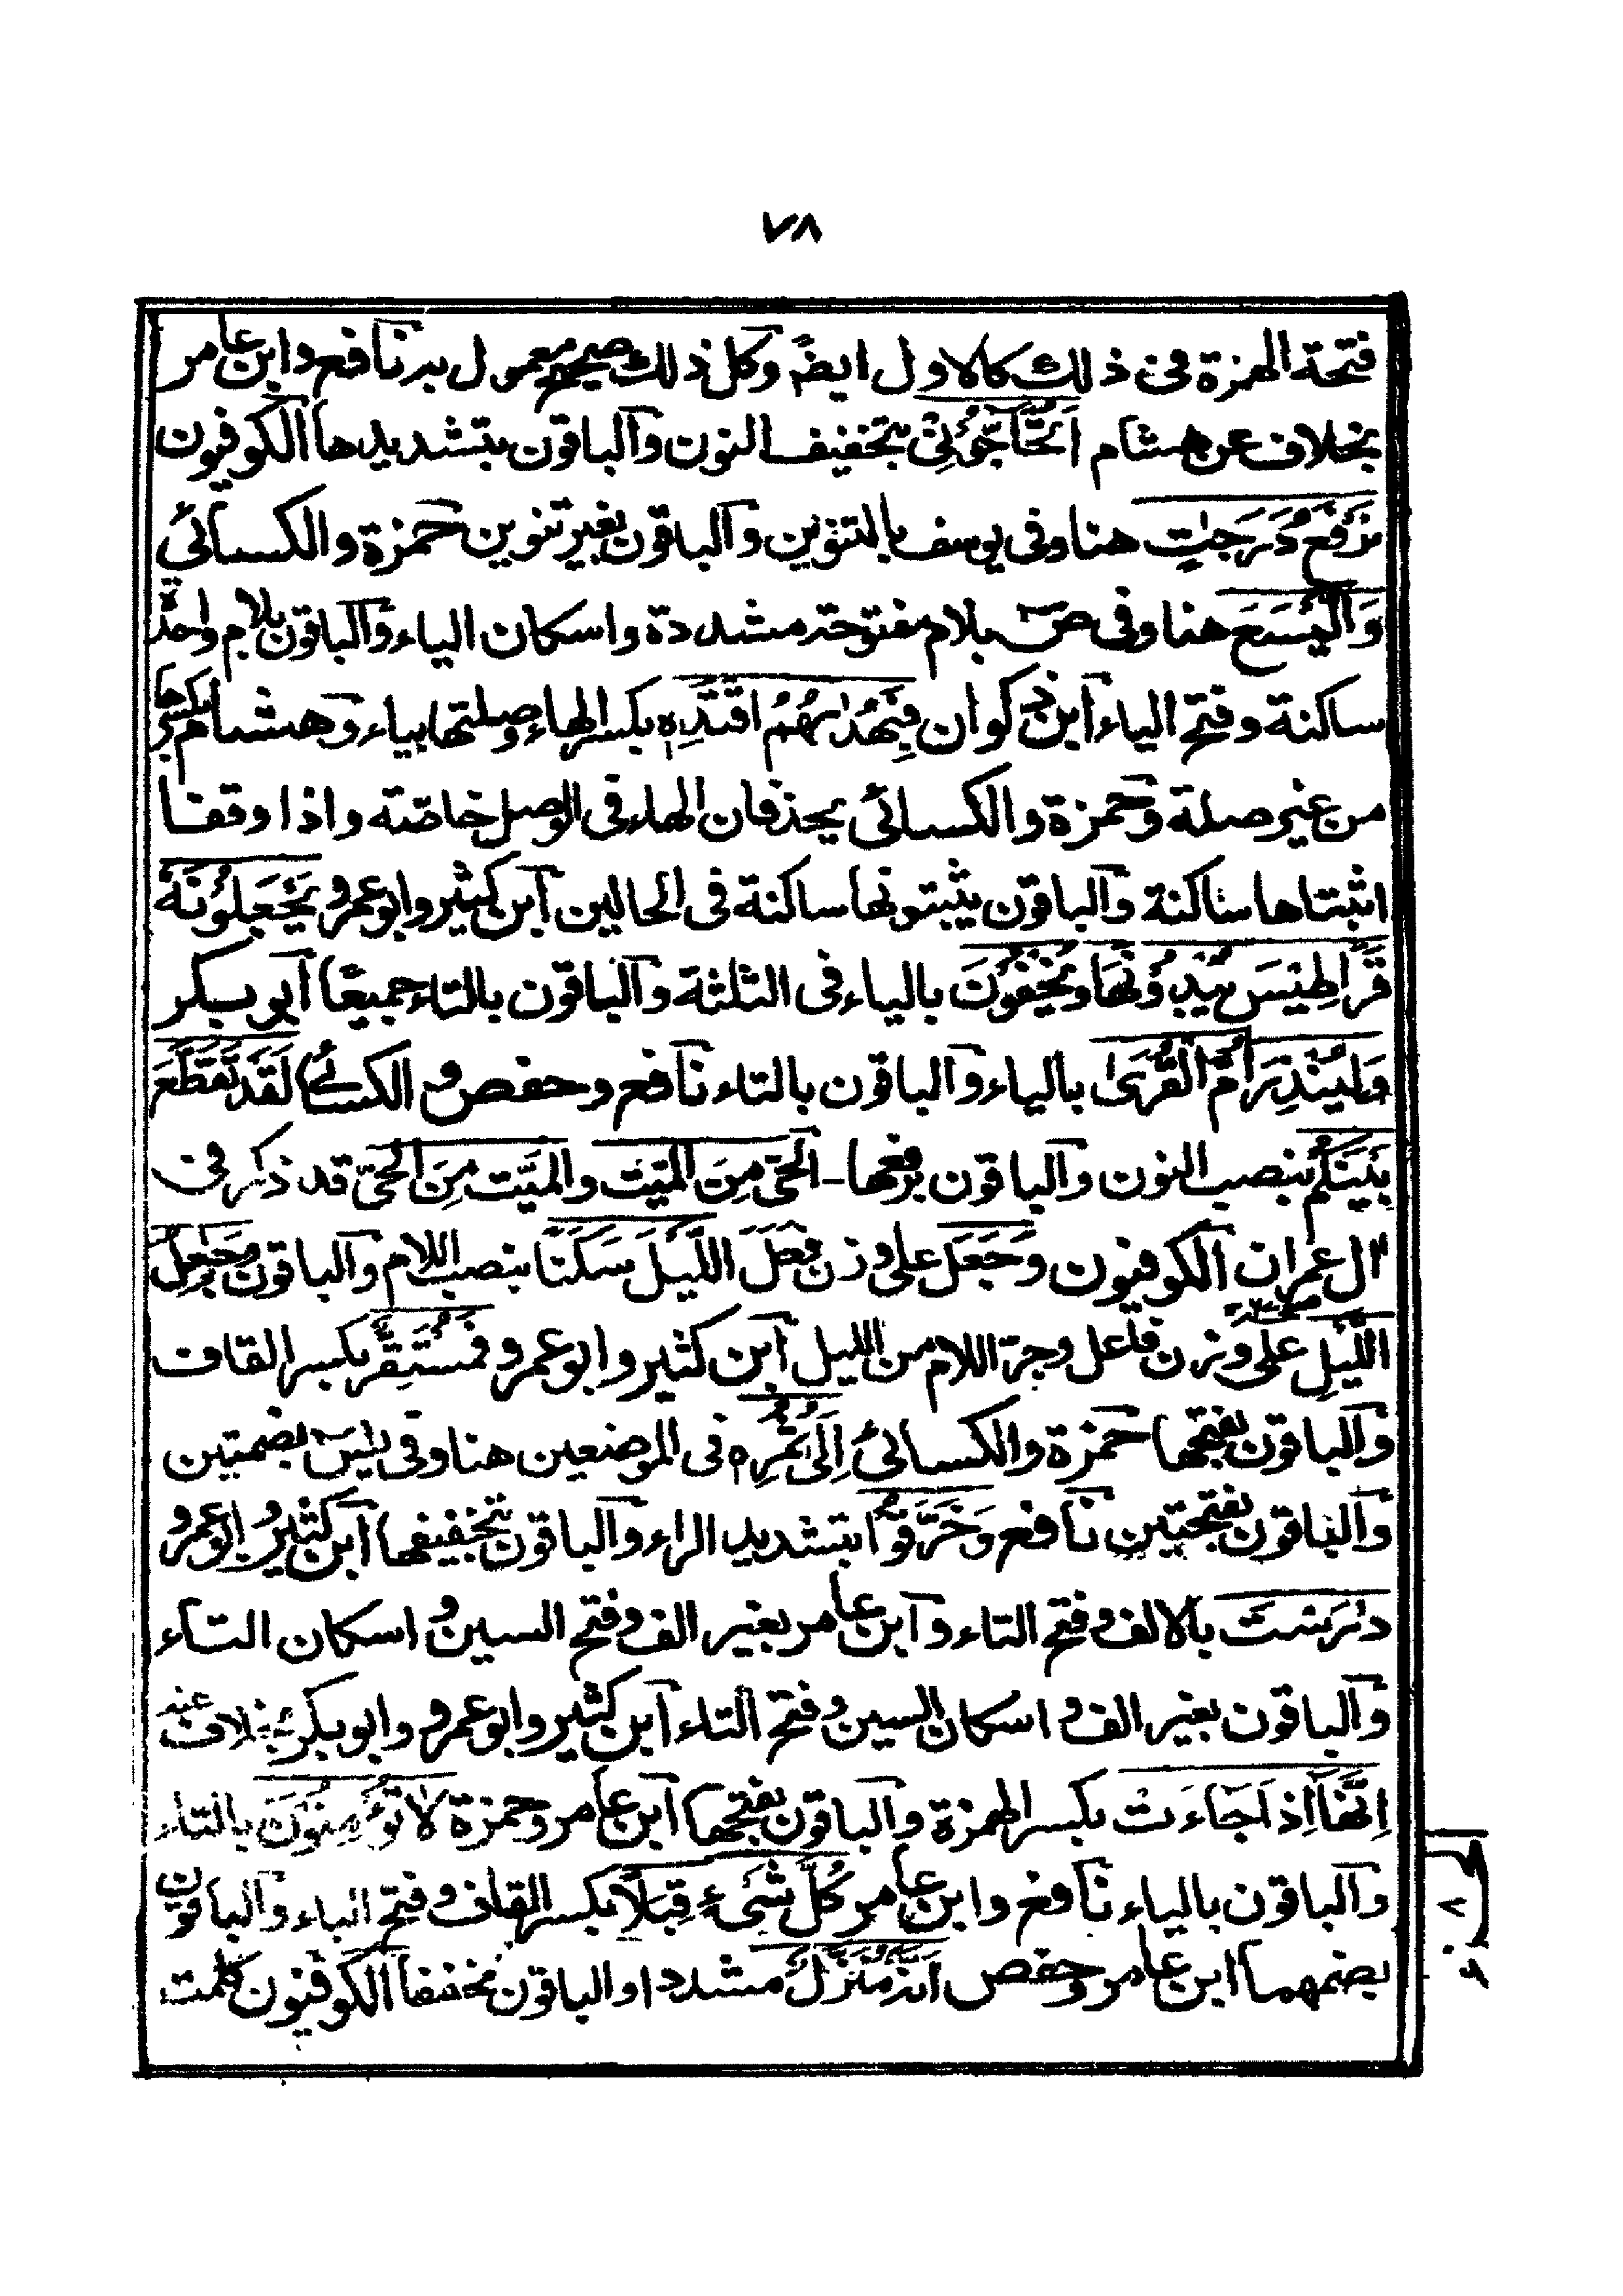 ٧٨
فتحة الهمزة فى ذلك كالاول ايضًا وكل ذلك صحيح معمول به نافع وابن عامر
بخلاف عن هشام اَتُحَآجُّوْنِّىْ بتخفيف النون والباقون بتشديدها الكوفيون
نَرْفَعُ دَرَجٰتٍ هنا وفى يوسف بالتنوين والباقون بغير تنوين حمزة والكسائى
وَالْيَسَعَ هنا وفى صٓ بلام مفتوحة مشددة واسكان الياء والباقون بلام واحدة
ساكنة وفتح الياء ابن ذكوان فَبِهُدٰىهُمُ اقْتَدِهِ بكسر الهاء وصلتها بياء وهشام بكسرها
من غير صلة وحمزة والكسائى يحذفان الهاء فى الوصل خاصّة واذا وقفا
اثبتاها ساكنة والباقون يثبتونها ساكنة فى الحالين ابن كثير وابو عمرو يَجْعَلُوْنَهٗ
قَرَاطِيْسَ يُبْدُوْنَهَا وَيُخْفُوْنَ بالياء فى الثلثة والباقون بالتاء جميعًا ابو بكر
وَلِيُنْذِرَ اُمَّ الْقُرٰى بالياء والباقون بالتاء نافع وحفص و الكسائى لَقَدْ تَقَطَّعَ
بَيْنَكُمْ بنصب النون والباقون برفعها - الْحَىَّ مِنَ الْمَيِّتِ والْمَيِّتِ مِنَ الْحَىِّ قد ذكر فى
اٰل عمران الكوفيون وَجَعَلَ على وزن فَعَلَ اللَّيْلَ سَكَنًا بنصب اللام والباقون وَجَاعِلُ
اللَّيْلِ على وزن فاعل وجرّ اللام من الليل ابن كثير وابو عمرو فَمُسْتَقِرٌّ بكسر القاف
والباقون بفتحها حمزة والكسائى اِلٰى ثُمُرِهٖ فى الموضعين هنا وفى يٰسٓ بضمتين
والباقون بفتحتين نافع وَخَرَّقُوْا بتشديد الراء والباقون بتخفيفها ابن كثير وابو عمرو
دٰرَسْتَ بالالف وفتح التاء وابن عامر بغير الف وفتح السين و اسكان التاء
والباقون بغير الف و اسكان السين وفتح التاء ابن كثير وابو عمرو وابو بكر بخلاف عنه
اِنَّهَآ اِذَا جَآءَتْ بكسر الهمزة والباقون بفتحها ابن عامر وحمزة لَا تُؤْمِنُوْنَ بالتاء
والباقون بالياء نافع وابن عامر كُلَّ شَىْءٍ قِبَلًا بكسر القاف وفتح الباء والباقون
بضمهما ابن عامر وحفص اَنَّهٗ مُنَزَّلٌ مشددا والباقون مخففا الكوفيون كلمت